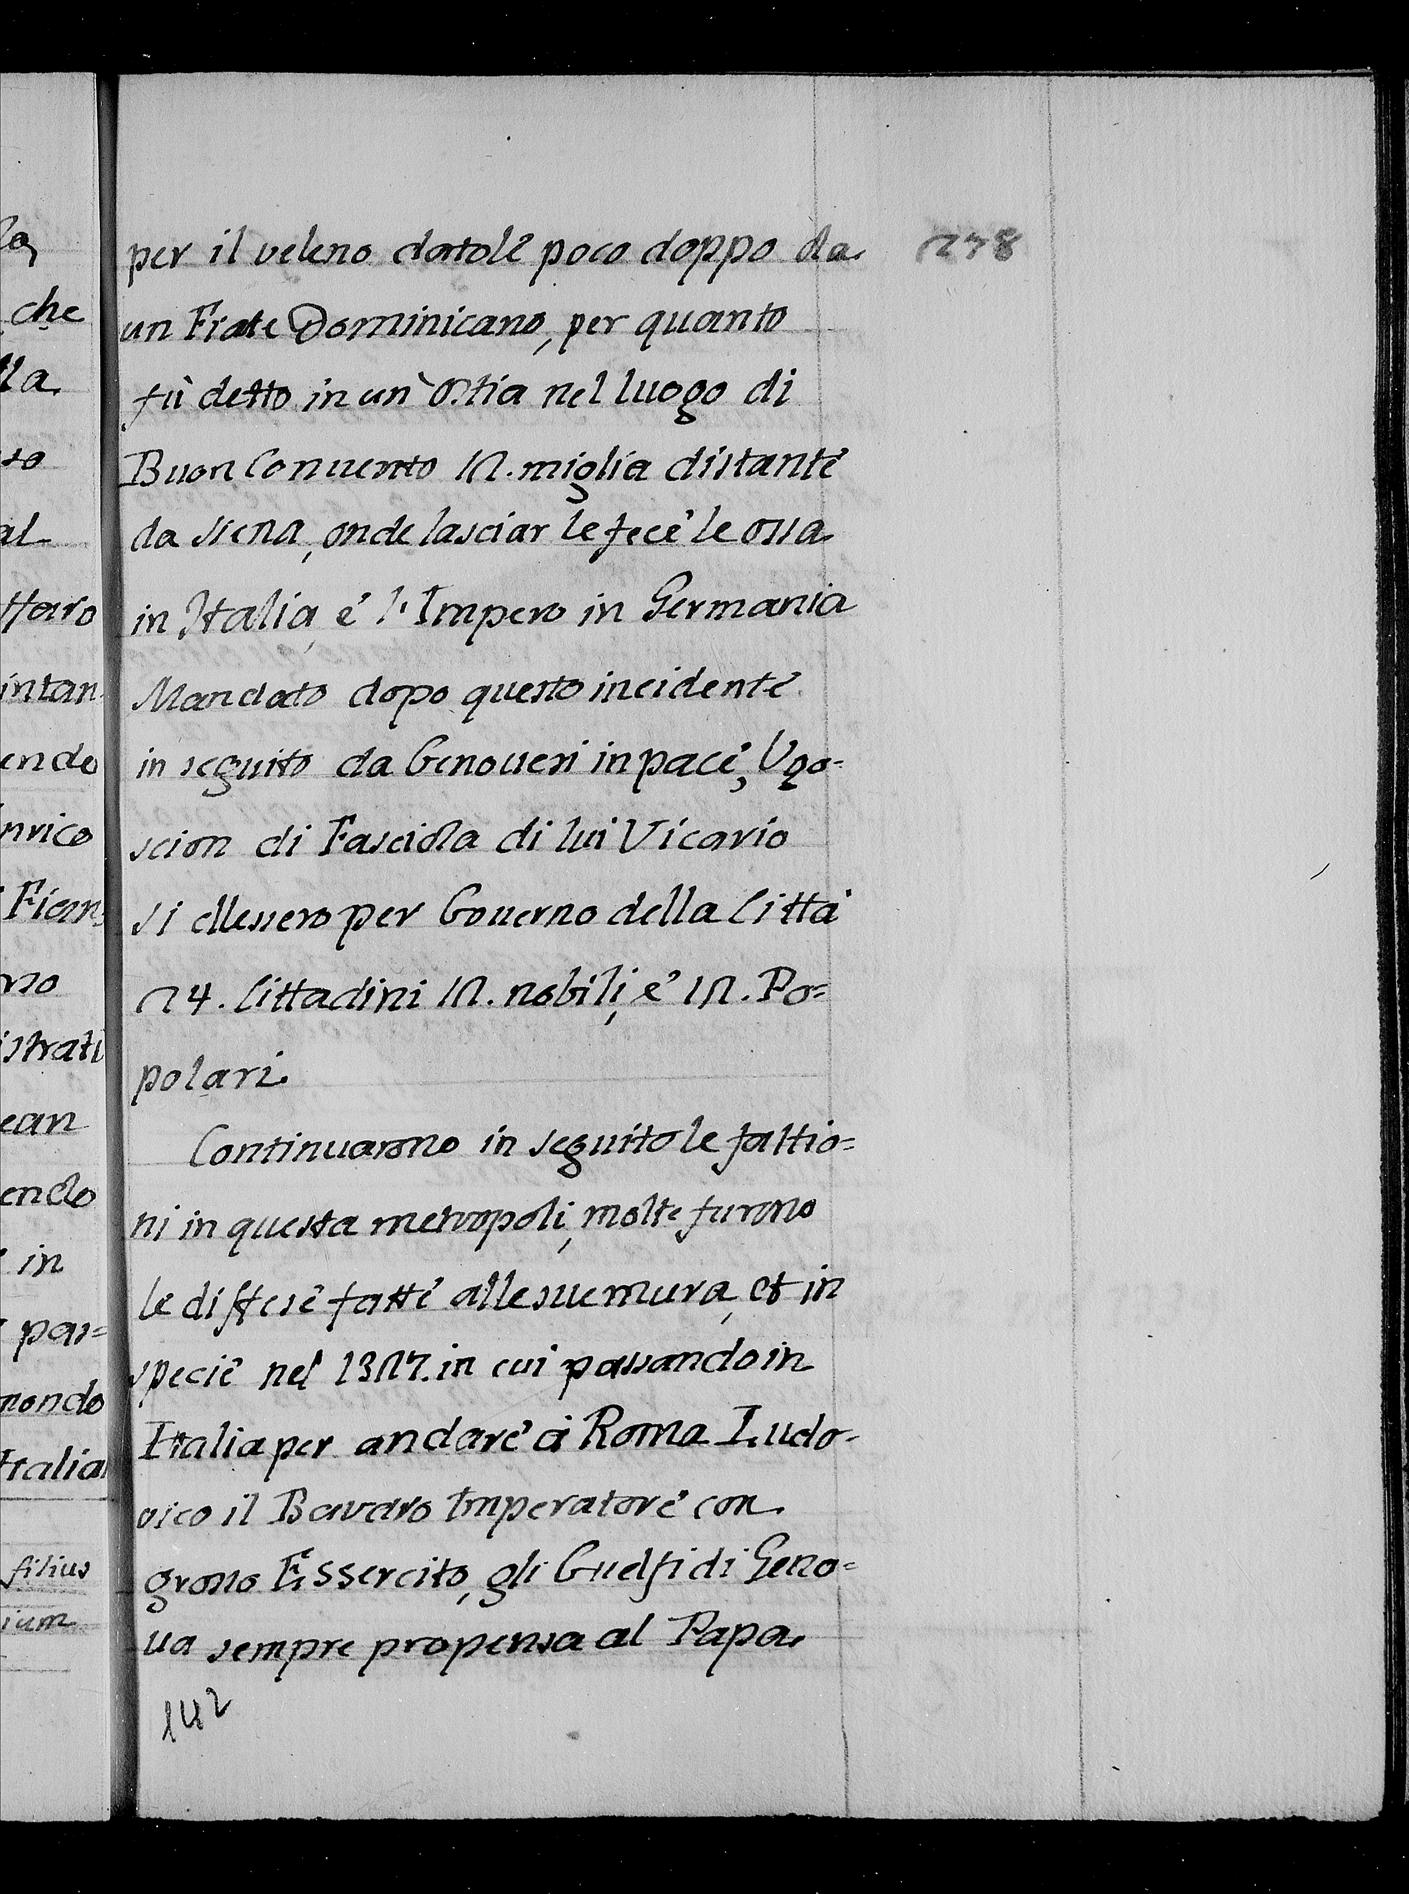 la
che
lla
to
al
ttaro
intan-
endo
nrico
Fiam
no
istrati
ean
endo
in
pas=
mondo
Italia
filius
ium
per il veleno datolè poco doppo da 278
un Frate Dominicano, per quanto
fù detto in un'Ostia nel luogo di
Buon Conuento 12. miglia distantè
da Siena, onde lasciar le fecè le ossa
in Italia, è l'Impero in Germania
Mandato dopo questo incidentè
in seguito da Genouesi in pacè, Ugo-
scion di Fasciola di lui Vicario
si ellessero per Gouerno della Città
24. Cittadini 12. nobili, è 12. Po=
polari.
Continuarono in seguito le fattio=
ni in questa metropoli, molte furono
le diffesè fattè alle sue mura, et in
speciè nel 1327. in cui passando in
Italia per andarè à Roma Ludo-
vico il Bavaro Imperatorè con
grosso Essercito, gli Guelfi di Geno=
ua sempre propensa al Papa
142